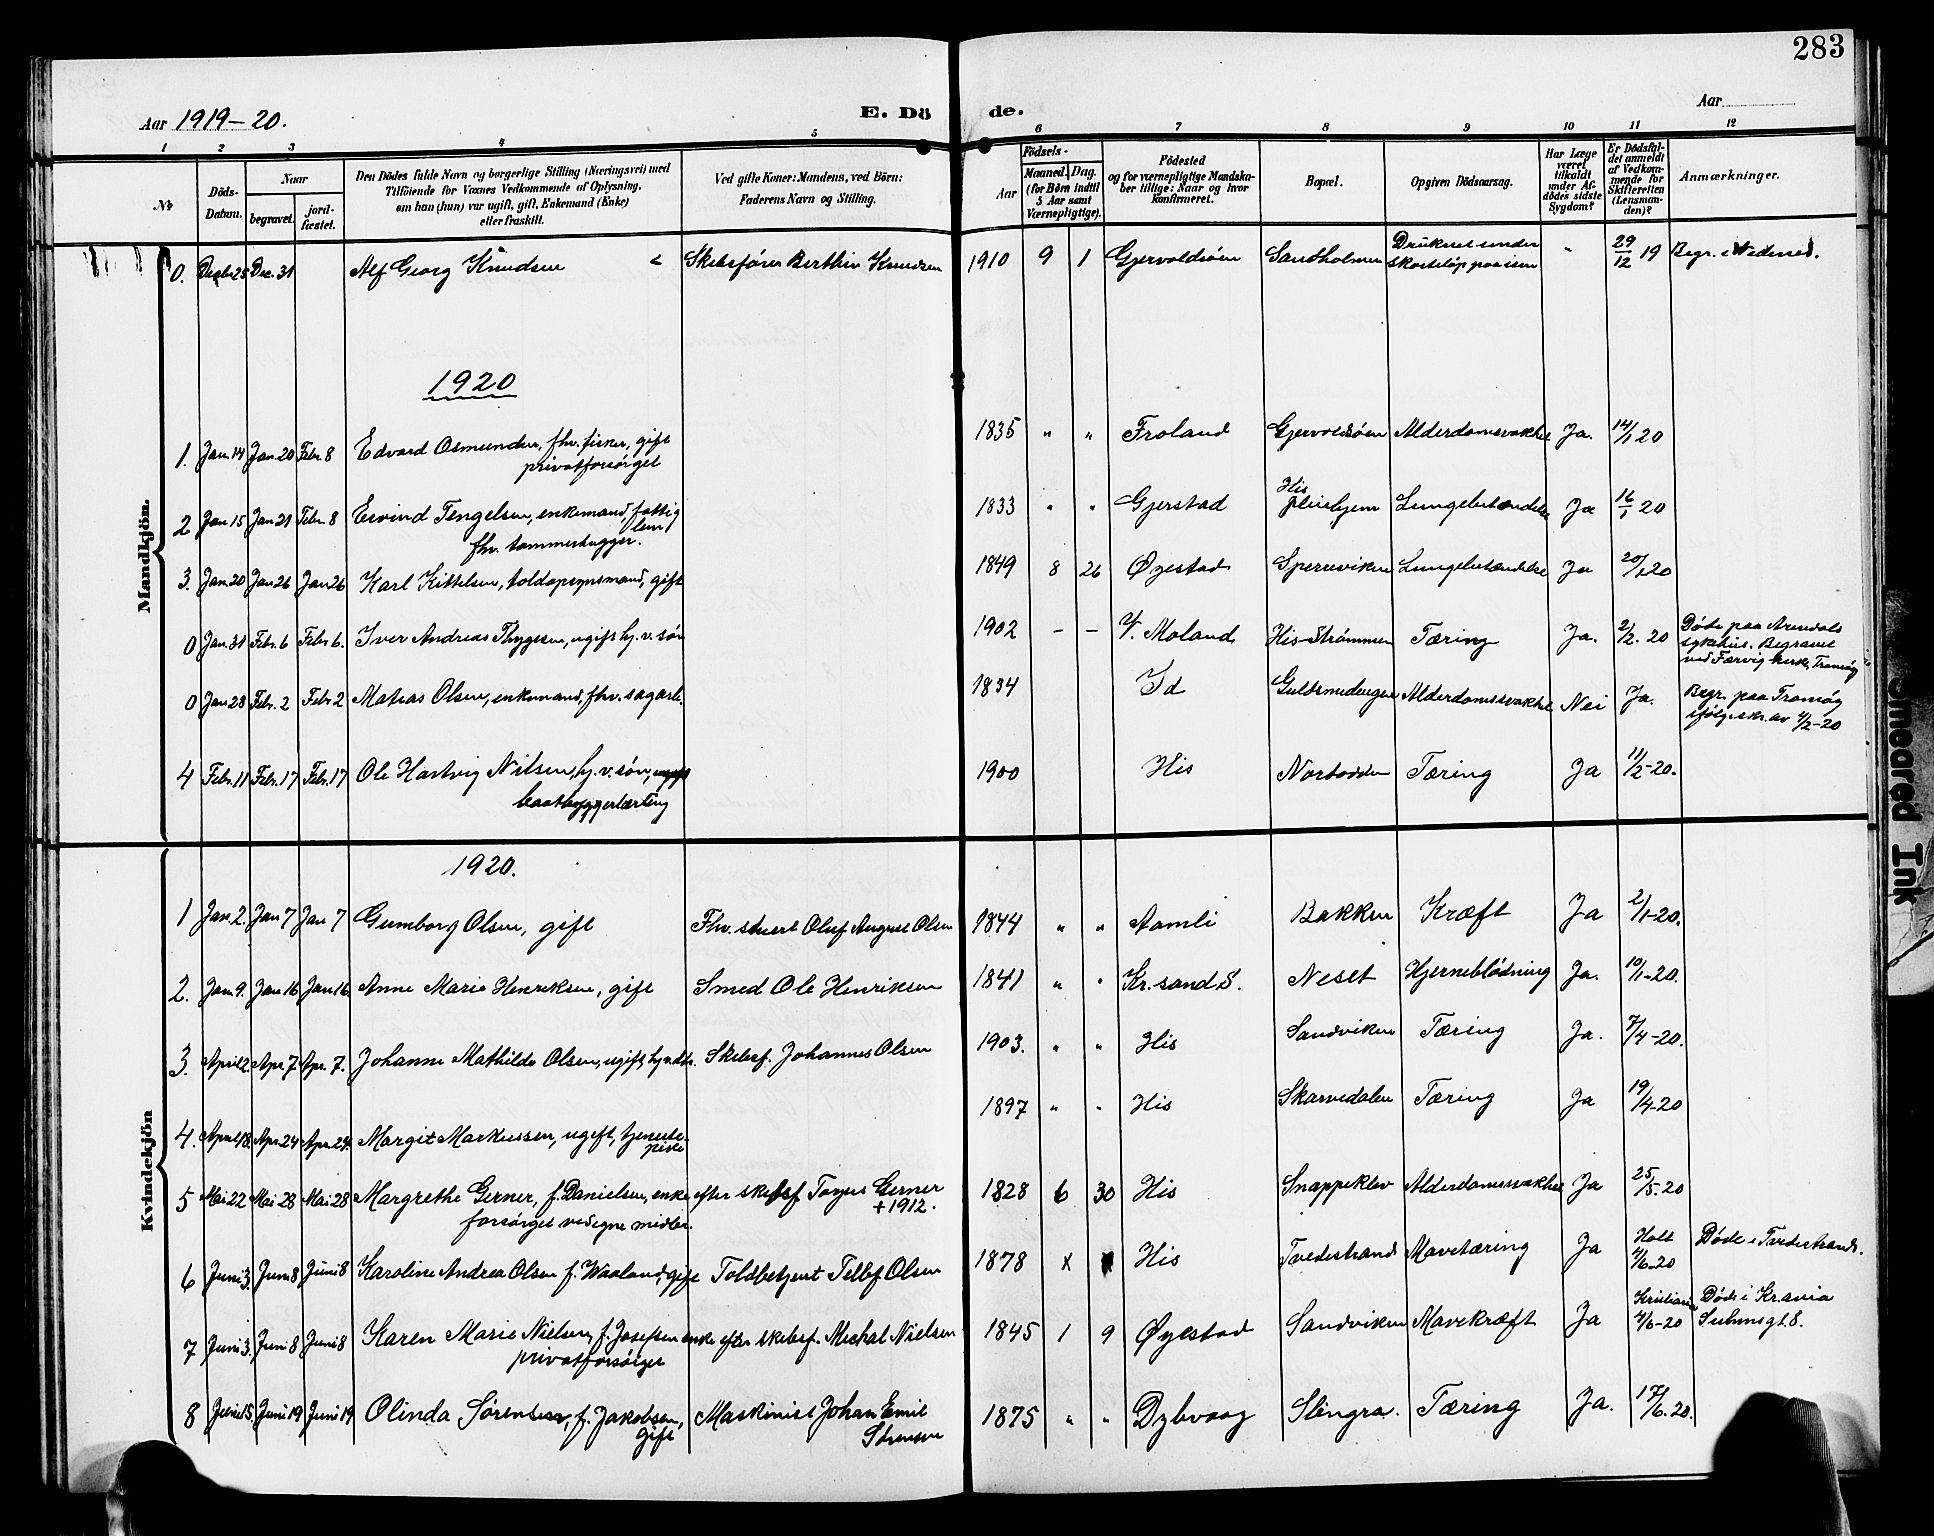 283
Aar 1919-20.
E. Dö
de.
Aar
1 2 3 4 5 6 7 8 9 10 11 12
No
Döds-Datum.
Naar
begravet.
jord-fæstet.
Den Dödes fulde Navn og borgerlige Stilling (Næringsvei) med
Tilföiende for Voxnes Vedkommende af Oplysning,
om han (hun) var ugift, gift, Enkemand (Enke)
eller fraskilt.
Ved gifte Koner: Mandens, ved Börn:
Faderens Navn og Stilling.
Födsels-
Aar
Maaned. Dag.
(for Börn indtil
5 Aar samt
Værnepligtige).
Födested
og for værnepligtige Mandska-
ber tillige: Naar og hvor
konfirmeret.
Bopæl.
Opgiven Dödsaarsag.
Har Læge
været
tilkaldt
under Af-
dödes sidste
Sygdom?
Er Dödsfal-
det anmeldt
af Vedkom-
mende for
Skifteretten
(Lensman-
den)?
Anmærkninger.
Mandkjön.
0. Decbr 28 Dec. 31 Alf Georg Knudsen Skibsfører Berthin Knudsen 1910 9 1 Gjervoldsöen Sandholmen Druknet under skøiteløp paa isen " 29/12 19 Begr. i Nedenes.
1920
1. Jan. 14 Jan. 20 Febr. 8 Edvard Osmundsen, fhv. fisker, gift
privatforsørget 1835 " " Froland Gjervoldsöen Alderdomssvakhet Ja. 14/1 20
2 Jan 15 Jan 21 Febr. 8 Eivind Tengelsen, enkemand, fattiglem
fhv. tømmerhugger. 1833 " " Gjerstad His pleiehjem Lungebetændelse Ja 16/1 20
3. Jan. 20 Jan 26 Jan 26 Karl Kittelsen, toldopsynsmand, gift 1849 8 26 Øyestad Sperreviken Lungebetændelse Ja 20/1 20
0 Jan. 31 Febr. 6 Febr. 6. Iver Andreas Thygesen, ugift hj. v. søn 1902 - - V. Moland His-Strømmen Tæring Ja. 2/2. 20 Døde paa Arendals sykehus. Begravet ved Færvig kirke, Tromøy
0 Jan 28 Febr. 2 Febr 2 Matias Olsen, enkemand, fhv. sagarb. 1834 Id Guldsmedengen Alderdomssvakhet Nei Ja. Begr. paa Tromøy ifølge skr. av 4/2-20
4 Febr. 11 Febr. 17 Febr. 17 Ole Hartvig Nilsen, hj. v. søn, ugift
baatbyggerlærling 1900 His Nesodden Tæring Ja 11/2-20.
Kvindekjön
1920.
1 Jan. 2. Jan 7 Jan 7 Gumborg Olsen, gift Fhv. stuert Oluf August Olsen 1844 " " Aamli Bakken Kræft Ja 2/1-20.
2. Jan. 9. Jan 16 Jan 16 Anne Marie Henriksen, gift Smed Ole Henriksen 1841 " " Kr.sand S. Neset Hjerneblödning Ja. 10/1-20.
3. April 2. Apr. 7 Apr. 7. Johanne Mathilde Olsen, ugift, hj. v. dtr. Skibsf. Johannes Olsen 1903. " " His Sandviken Tæring Ja. 7/4-20.
4. April 18. Apr. 24 Apr. 24. Margit Markussen, ugift, tjeneste-
pike 1897 " " His Skarvedalen Tæring Ja 19/4-20
5 Mai 22 Mai 28 Mai 28 Margrethe Gerner, f. Danielsen, enke efter skibsf. Tønes Gerner
forsørget ved egne midler. + 1912. 1828 6 30 His Snappeklev Alderdomssvakhet Ja 25/5-20
6 Juni 3. Juni 8 Juni 8 Karoline Andrea Olsen f. Waaland, gift Toldbetjent Tellef Olsen 1878 x x His Tvedestrand Mavetæring Ja Holt 4/6-20 Døde i Tvedestrand.
7 Juni 3. Juni 8 Juni 8 Karen Marie Nielsen, f. Josefsen enke efter skibsf. Michal Nielsen
privatforsørget 1845 1 9 Øyestad Sandviken Mavekræft Ja Kristiania 4/6-20 Døde i Kr.ania Suhmsgt. 8.
8 Juni 15. Juni 19 Juni 19 Olinda Sørensen, f. Jakobsen,
gift Maskinist Johan Emil
Sørensen 1875 " " Dybvaag Slengra. Tæring Ja. 17/6. 20.
Smeared Ink